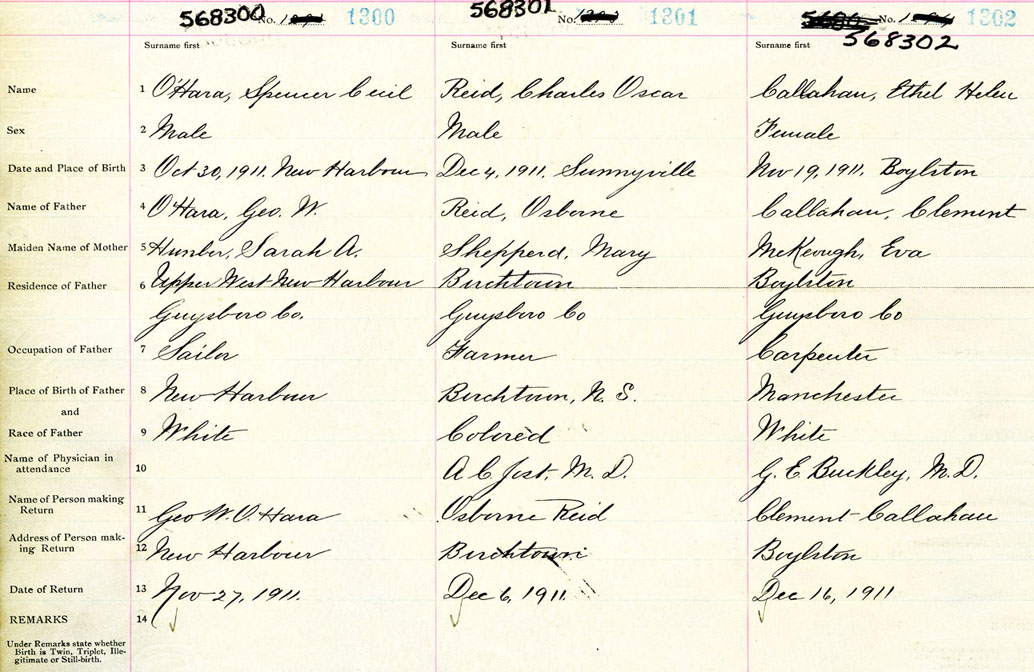 568300 No. 1300 568301 No. 1301 No. 1302
568302
Surname first Surname first Surname first
Name 1 O'Hara, Spencer Cecil Reid, Charles Oscar Callahan, Ethel Helen
Sex 2 Male Male Female
Date and Place of Birth 3 Oct 30, 1911. New Harbour Dec 4, 1911. Sunnyville Nov 19, 1911. Boylston
Name of Father 4 O'Hara, Geo. W. Reid, Osborne Callahan, Clement
Maiden Name of Mother 5 Hunter, Sarah A. Shepperd, Mary McKeough, Eva
Residence of Father 6 Upper West New Harbour Birchtown Boylston
Guysboro Co. Guysboro Co Guysboro Co
Occupation of Father 7 Sailor Farmer Carpenter
Place of Birth of Father 8 New Harbour Birchtown, N. S. Manchester
and
Race of Father 9 White Colored White
Name of Physician in
attendance 10 A C Jost, M. D. G. E Buckley, M. D.
Name of Person making
Return 11 Geo W. O'Hara Osborne Reid Clement Callahan
Address of Person mak-
ing Return 12 New Harbour Birchtown Boylston
Date of Return 13 Nov 27, 1911. Dec 6, 1911. Dec 16, 1911
REMARKS 14
Under Remarks state whether
Birth is Twin, Triplet, Ille-
gitimate or Still-birth.